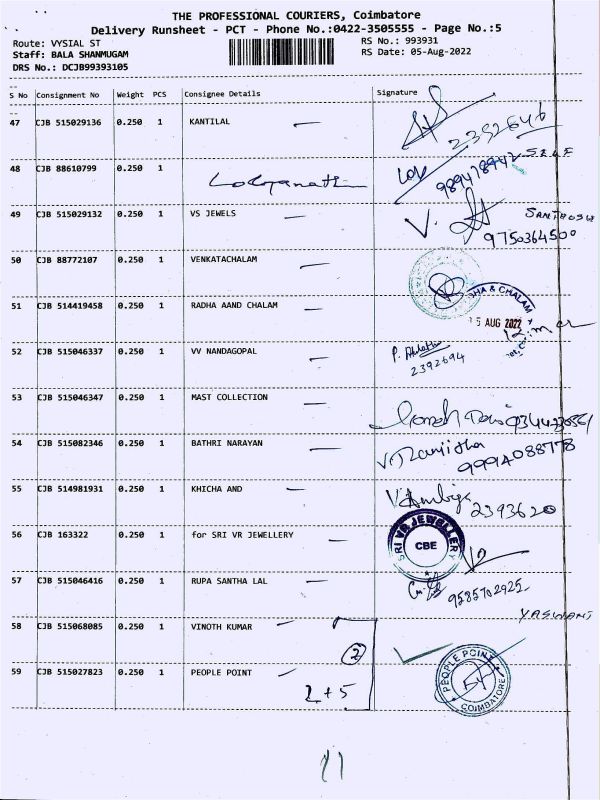 THE PROFESSIONAL COURIERS, Coimbatore
Delivery Runsheet - PCT - Phone No.:0422-3505555 - Page No.:5
Route: VYSIAL ST
RS No.: 993931
Staff: BALA SHANMUGAM
RS Date: 05-Aug-2022
DRS No.: DCJB99393105
S No Consignment No Weight PCS Consignee Details Signature
47 CJB 515029136 0.250 1 KANTILAL
2392646
48 CJB 88610799 0.250 1
SELF
49 CJB 515029132 0.250 1 VS JEWELS
SANTHOSH
9750364500
50 CJB 88772107 0.250 1 VENKATACHALAM
51 CJB 514419458 0.250 1 RADHA AAND CHALAM
HA & CHALAM
5 AUG 2022
52 CJB 515046337 0.250 1 VV NANDAGOPAL
2392694
53 CJB 515046347 0.250 1 MAST COLLECTION
54 CJB 515082346 0.250 1 BATHRI NARAYAN
V. Ranjitha
55 CJB 514981931 0.250 1 KHICHA AND
V. Ambiga 2393620
56 CJB 163322 0.250 1 for SRI VR JEWELLERY
SRI VR JEWELLERY
CBE
57 CJB 515046416 0.250 1 RUPA SANTHA LAL
9585702925
58 CJB 515068085 0.250 1 VINOTH KUMAR
2
59 CJB 515027823 0.250 1 PEOPLE POINT
2 + 5
PEOPLE POINT
COIMBATORE
11